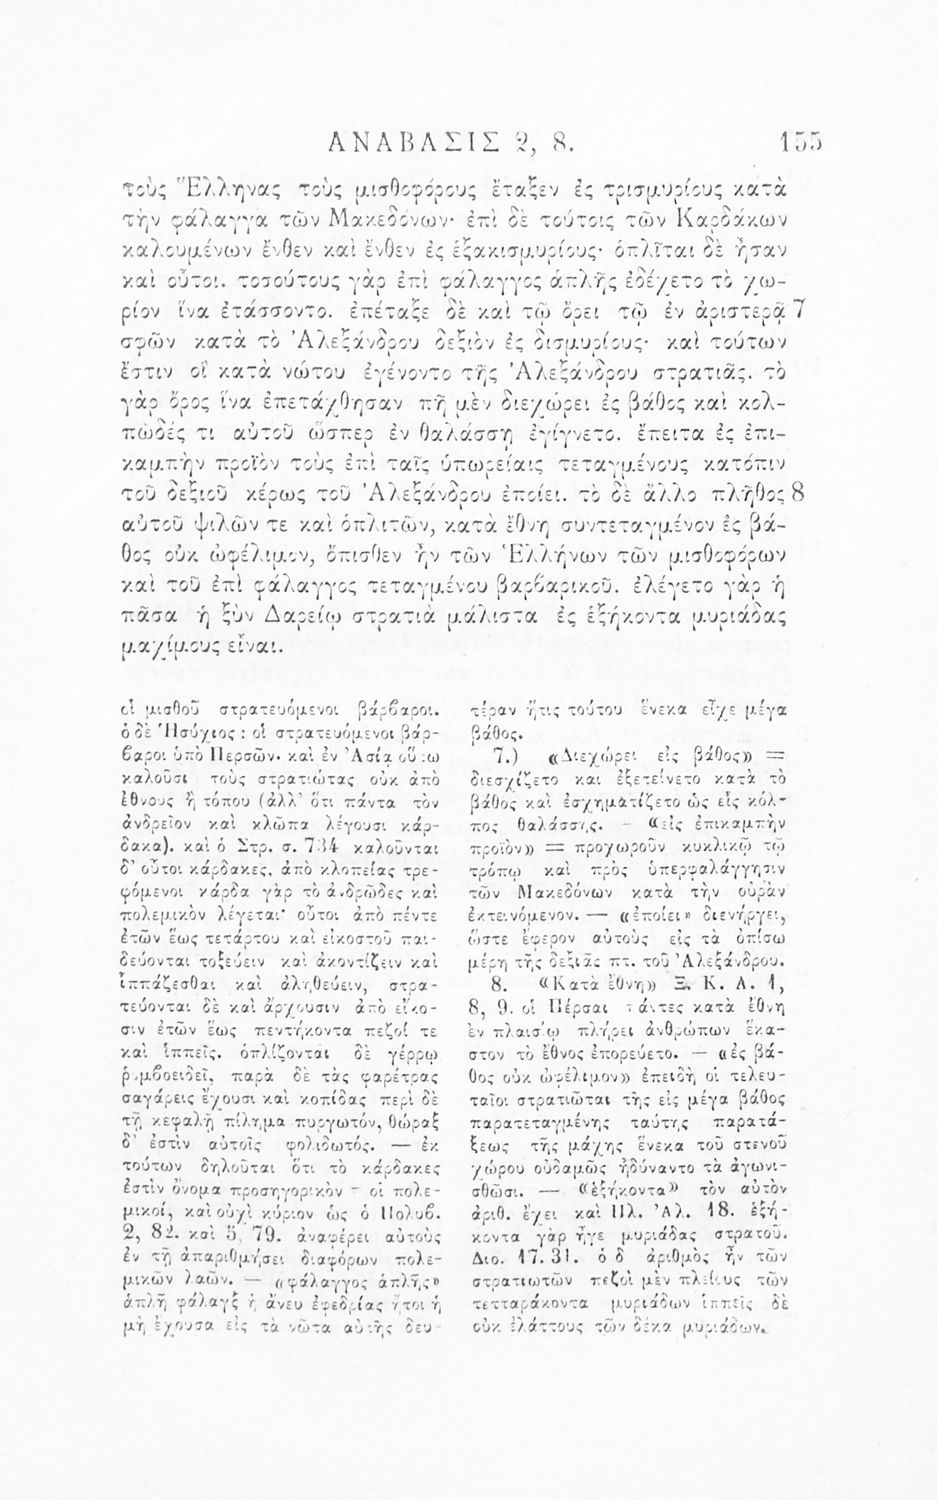 ΑΝΑΒΑΣΙΣ 2, 8. 155
τοὺς Ἕλληνας τοὺς μισθοφόρους ἔταξεν ἐς τρισμυρίους κατὰ
τὴν φάλαγγα τῶν Μακεδόνων· ἐπὶ δὲ τούτοις τῶν Καρδάκων
καλουμένων ἔνθεν καὶ ἔνθεν ἐς ἑξακισμυρίους· ὁπλῖται δὲ ἦσαν
καὶ οὗτοι. τοσούτους γὰρ ἐπὶ φάλαγγος ἁπλῆς ἐδέχετο τὸ χω-
ρίον ἵνα ἐτάσσοντο. ἐπέταξε δὲ καὶ τῷ ὄρει τῷ ἐν ἀριστερᾷ 7
σφῶν κατὰ τὸ Ἀλεξάνδρου δεξιὸν ἐς δισμυρίους· καὶ τούτων
ἔστιν οἳ κατὰ νώτου ἐγένοντο τῆς Ἀλεξάνδρου στρατιᾶς. τὸ
γὰρ ὄρος ἵνα ἐπετάχθησαν πῆ μὲν διεχώρει ἐς βάθος καὶ κολ-
πῶδές τι αὐτοῦ ὥσπερ ἐν θαλάσσῃ ἐγίγνετο. ἔπειτα ἐς ἐπι-
καμπὴν προϊὸν τοὺς ἐπὶ ταῖς ὑπωρείαις τεταγμένους κατόπιν
τοῦ δεξιοῦ κέρως τοῦ Ἀλεξάνδρου ἐποίει. τὸ δὲ ἄλλο πλῆθος 8
αὐτοῦ ψιλῶν τε καὶ ὁπλιτῶν, κατὰ ἔθνη συντεταγμένον ἐς βά-
θος οὐκ ὠφέλιμον, ὄπισθεν ἦν τῶν Ἑλλήνων τῶν μισθοφόρων
καὶ τοῦ ἐπὶ φάλαγγος τεταγμένου βαρβαρικοῦ. ἐλέγετο γὰρ ἡ
πᾶσα ἡ ξὺν Δαρείῳ στρατιὰ μάλιστα ἐς ἑξήκοντα μυριάδας
μαχίμους εἶναι.
οἱ μισθοῦ στρατευόμενοι βάρβαροι.
ὁ δὲ Ἡσύχιος : οἱ στρατευόμενοι βάρ-
βαροι ὑπὸ Περσῶν· καὶ ἐν Ἀσίᾳ οὕτω
καλοῦσι τοὺς στρατιώτας οὐκ ἀπὸ
ἔθνους ἢ τόπου (ἀλλ' ὅτι πάντα τὸν
ἀνδρεῖον καὶ κλῶπα λέγουσι κάρ-
δακα). καὶ ὁ Στρ. σ. 734 καλοῦνται
δ' οὗτοι κάρδακες, ἀπὸ κλοπείας τρε-
φόμενοι κάρδα γὰρ τὸ ἀνδρῶδες καὶ
πολεμικὸν λέγεται· οὗτοι ἀπὸ πέντε
ἐτῶν ἕως τετάρτου καὶ εἰκοστοῦ παι-
δεύονται τοξεύειν καὶ ἀκοντίζειν καὶ
ἱππάζεσθαι καὶ ἀληθεύειν, στρα-
τεύονται δὲ καὶ ἄρχουσιν ἀπὸ εἴκο-
σιν ἐτῶν ἕως πεντήκοντα πεζοί τε
καὶ ἱππεῖς. ὁπλίζονται δὲ γέρρῳ
ῥομβοειδεῖ, παρὰ δὲ τὰς φαρέτρας
σαγάρεις ἔχουσι καὶ κοπίδας περὶ δὲ
τῇ κεφαλῇ πίλημα πυργωτόν, θώραξ
δ' ἐστὶν αὐτοῖς φολιδωτός. — ἐκ
τούτων δηλοῦται ὅτι τὸ κάρδακες
ἐστὶν ὄνομα προσηγορικὸν - οἱ πολε-
μικοί, καὶ οὐχὶ κύριον ὡς ὁ Πολυβ.
2, 82. καὶ 5, 79. ἀναφέρει αὐτοὺς
ἐν τῇ ἀπαριθμήσει διαφόρων πολε-
μικῶν λαῶν. — «φάλαγγος ἁπλῆς»
ἁπλῆ φάλαγξ ἡ ἄνευ ἐφεδρίας ἤτοι ἡ
μὴ ἔχουσα εἰς τὰ νῶτα αὐτῆς δευ-
τέραν ἥτις τούτου ἕνεκα εἶχε μέγα
βάθος.
7.) «Διεχώρει εἰς βάθος» =
διεσχίζετο καὶ ἐξετείνετο κατὰ τὸ
βάθος καὶ ἐσχηματίζετο ὡς εἰς κόλ-
πος θαλάσσης. - «εἰς ἐπικαμπὴν
προϊὸν» = προχωροῦν κυκλικῷ τῷ
τρόπῳ καὶ πρὸς ὑπερφαλάγγησιν
τῶν Μακεδόνων κατὰ τὴν οὐρὰν
ἐκτεινόμενον. — «ἐποίει» διενήργει,
ὥστε ἔφερον αὐτοὺς εἰς τὰ ὀπίσω
μέρη τῆς δεξιᾶς πτ. τοῦ Ἀλεξάνδρου.
8. «Κατὰ ἔθνη» Ξ. Κ. Α. 1,
8, 9. οἱ Πέρσαι πάντες κατὰ ἔθνη
ἐν πλαισίῳ πλήρει ἀνθρώπων ἕκα-
στον τὸ ἔθνος ἐπορεύετο. — «ἐς βά-
θος οὐκ ὠφέλιμον» ἐπειδὴ οἱ τελευ-
ταῖοι στρατιῶται τῆς εἰς μέγα βάθος
παρατεταγμένης ταύτης παρατά-
ξεως τῆς μάχης ἕνεκα τοῦ στενοῦ
χώρου οὐδαμῶς ἠδύναντο τὰ ἀγωνι-
σθῶσι. — «ἑξήκοντα» τὸν αὐτὸν
ἀριθ. ἔχει καὶ Πλ. Ἀλ. 18. ἑξή-
κοντα γὰρ ἦγε μυριάδας στρατοῦ.
Διο. 17. 31. ὁ δ ἀριθμὸς ἦν τῶν
στρατιωτῶν πεζοὶ μὲν πλείους τῶν
τετταράκοντα μυριάδων ἱππεῖς δὲ
οὐκ ἐλάττους τῶν δέκα μυριάδων.